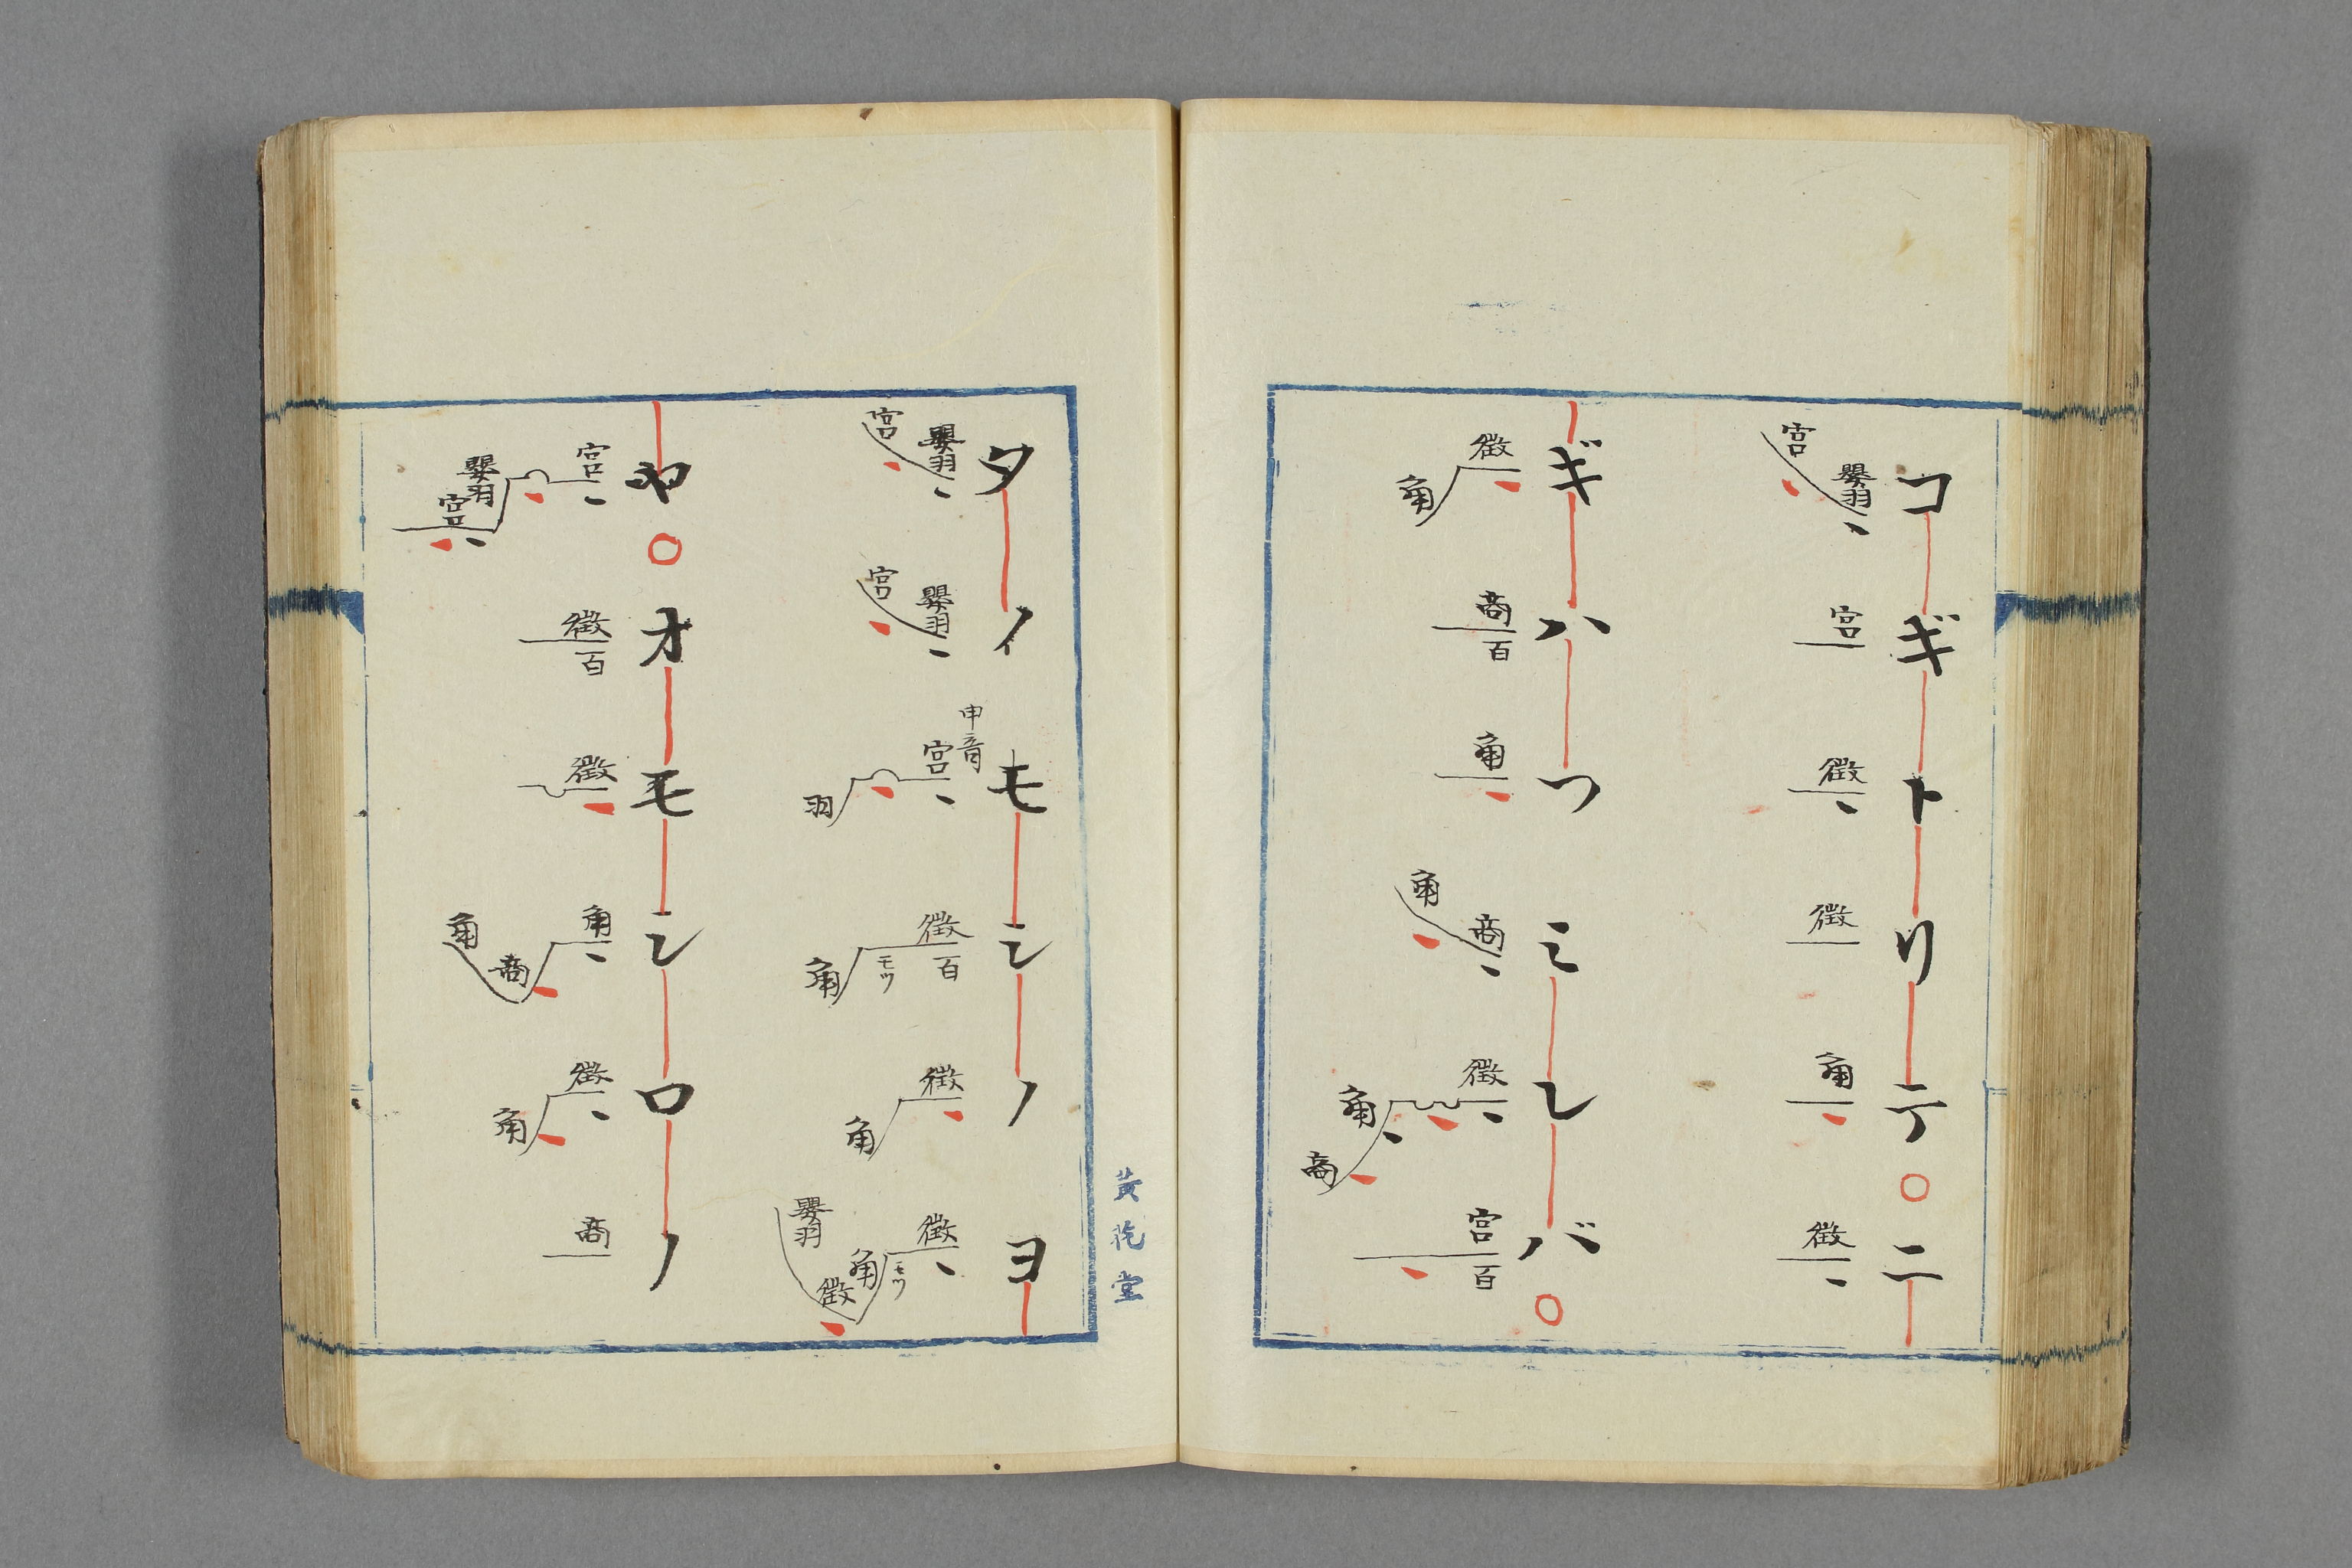 コギトリテ○ニ
嬰羽 宮
宮
徴
徴
角
徴
ギハツミレバ○
徴 角
商 百
角
商 角
徴 角 商
宮 百
タノモシノヨ
嬰羽 宮
嬰羽 宮
申音 宮 羽
徴 百 モツ 角
徴 角
徴 モツ 角 徴 嬰羽
ヤ○オモシロノ
宮 嬰羽 宮
徴 百
徴
角 商 角
徴 角
商